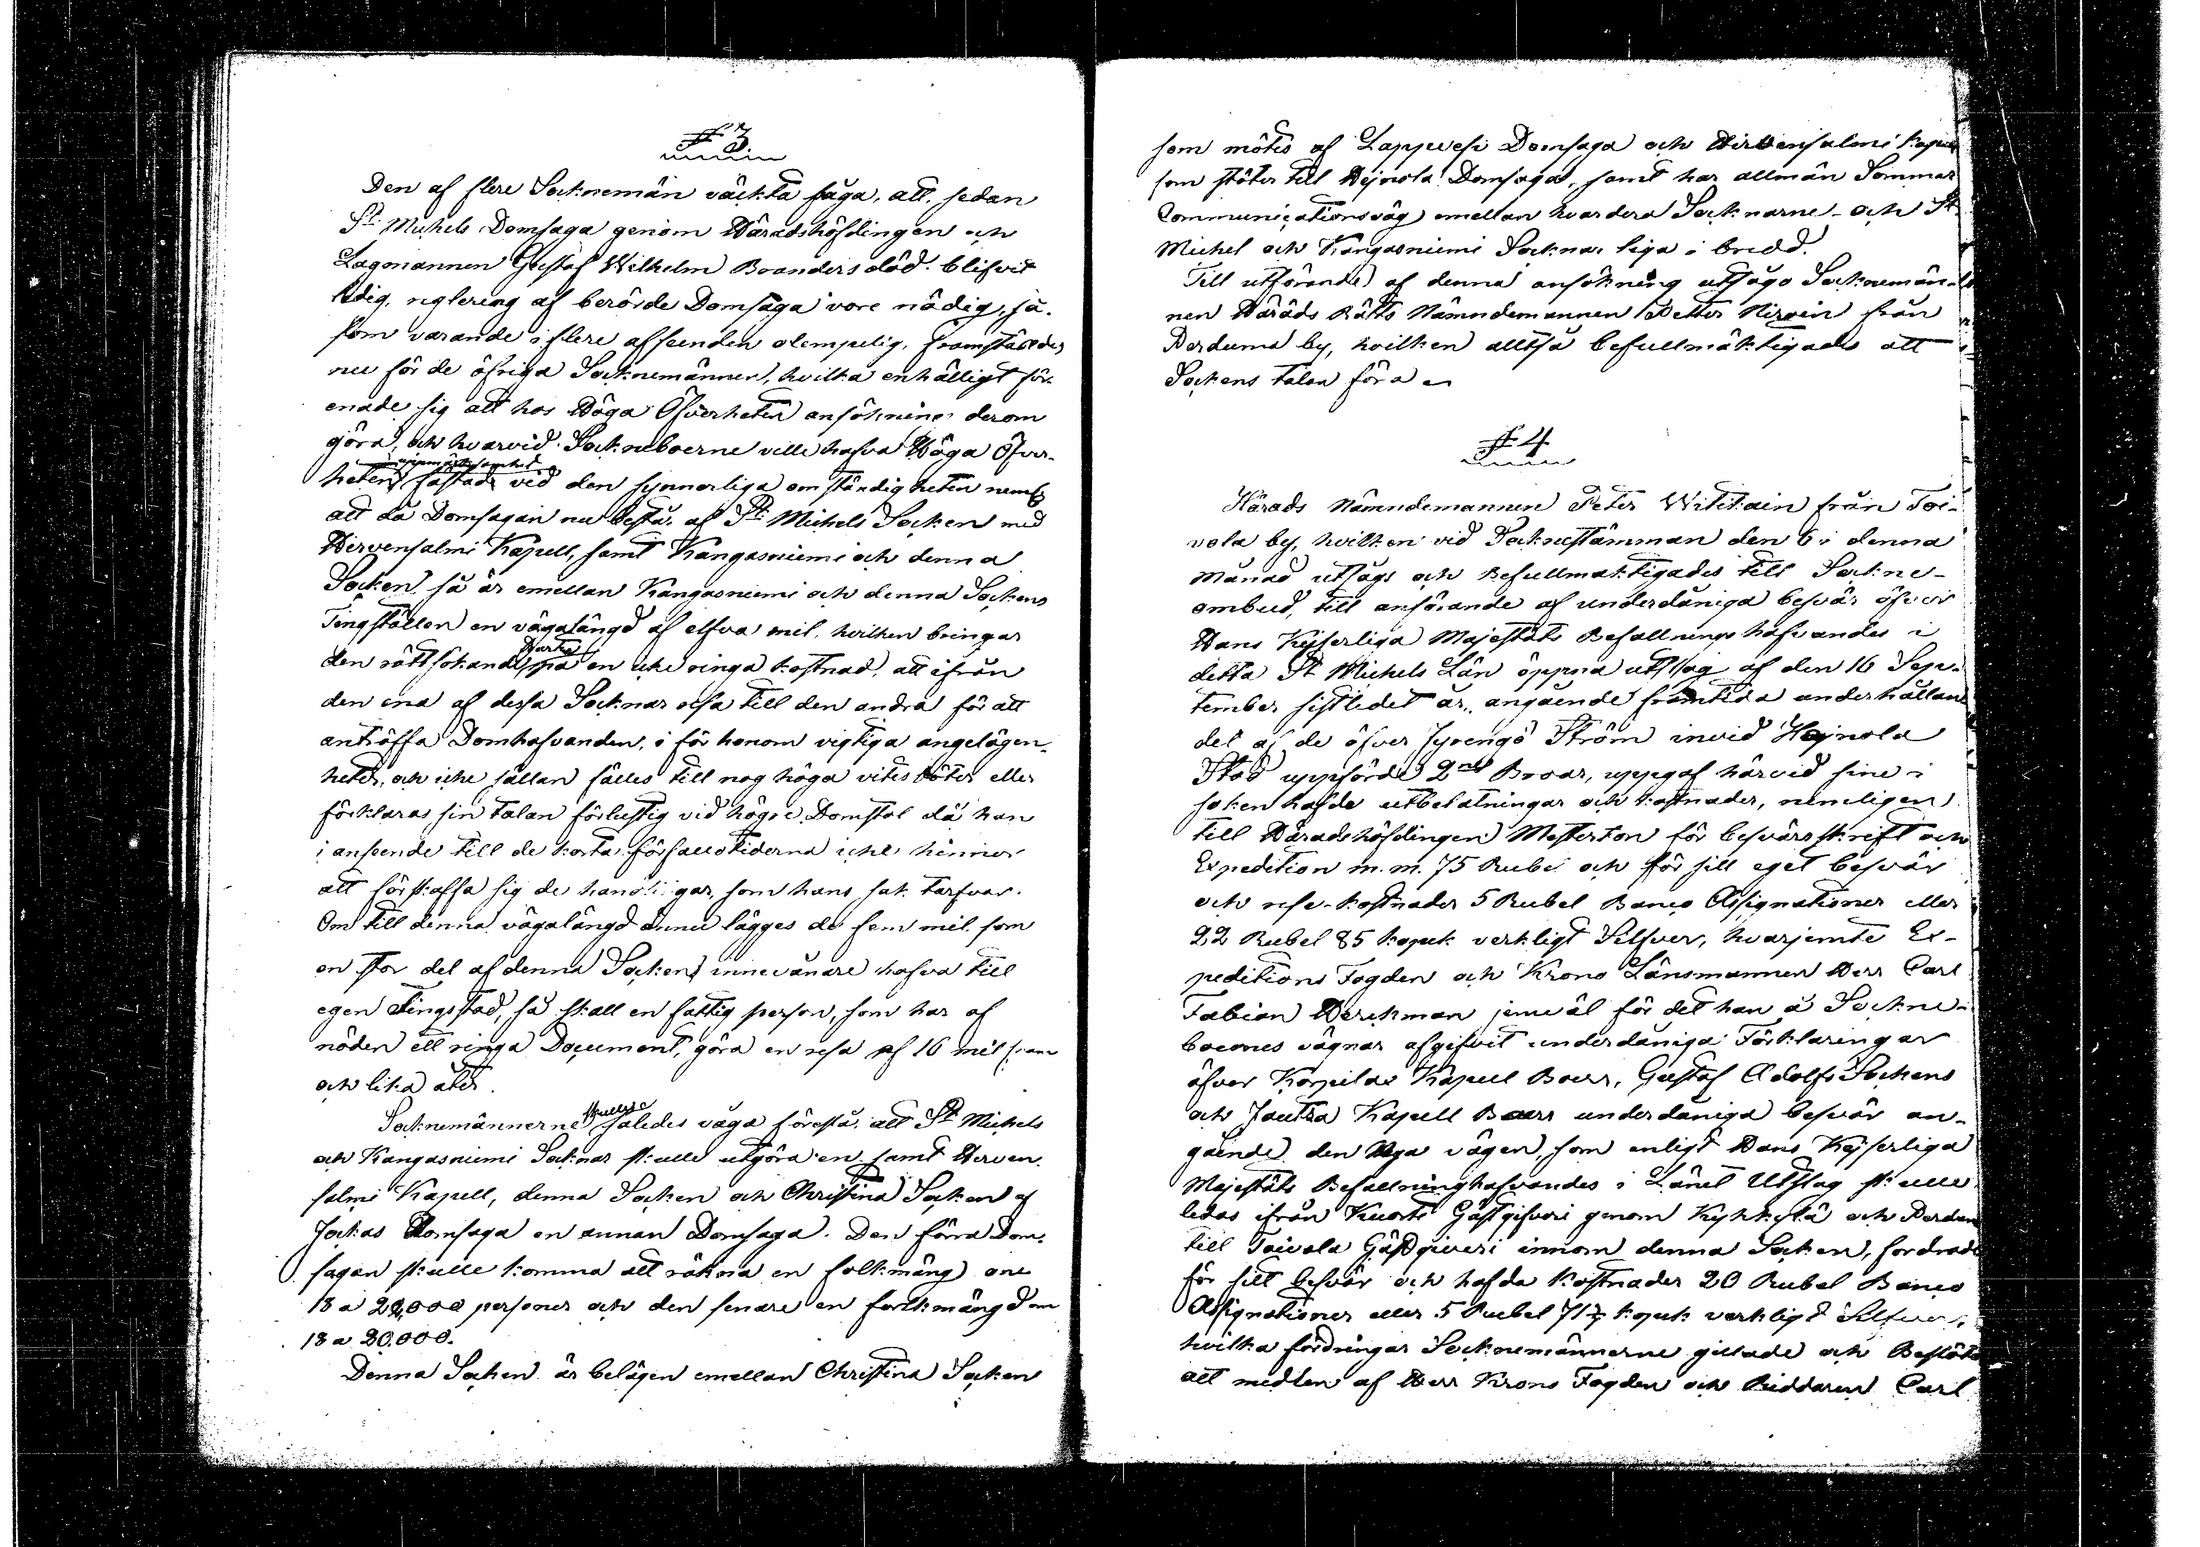 § 3
Den af flere Socknemän väckta fåga, att, sedan
St. Michels Domsaga genom Häradshöfdingen och
Lagmannen Gustaf Wilhelm Boanders död blifvit
ledig, reglering af berörde Domsaga vore nödig, så-
som varande i flere afseenden olempelig, framstäldes
nu för de öfriga Socknemännen, hvilka enhälligt för-
enade sig att hos Höga Öfverheten ansökning derom
göra, och hvarvid Sockneboerne ville hafva Höga Öfver-
hetens uppmärksamhet fästade vid den synnerliga omständigheten neml.
att då Domsagan nu består af St. Michels Socken med
Hirvensalmi Kapell, samt Kangasniemi och denna
Socken, så är emellan Kangasniemi och denna Sockens
Tingställen en vägalängd af elfva mil, hvilken bringar
den rättsökande Parten på en icke ringa kostnad, att ifrån
den ena af dessa Socknar resa till den andra för att
anträffa Domhafvanden, i för honom vigtiga angelägen-
heter, och icke sällan fälles till nog höga vites böter eller
förklaras sin talan förlustig vid högre Domstol då han
i anseende till de korta försuttotiderna icke hinner
att förskaffa sig de handlingar, som hans sak tarfvar.
Om till denna vägalängd ännu lägges de fem mil som
en stor del af denna Sockens innevånare hafva till
egen Tingstad, så skall en fattig person, som har af
nöden ett ringa Document, göra en resa af 16 mil fram
och lika åter.
Socknemännerne skulle således våga föreslå, att St. Michels
och Kangasniemi Socknar skulle utgöra en samt Hirven-
salmi Kapell, denna Socken och Christina Socken af
Jockas Domsaga en annan Domsaga. Den förra Dom-
sagan skulle komma att räkna en folkmängd om
18 a 20,000 personer och den senare en folkmängd om
18 a 20.000.
Denna Socken är belägen emellan Christina Socken
som mötes af Lappvesi Domsaga och Hirvensalmi kapell
som stöter till Hejnola Domsaga, samt har allmän Sommar
Communicationsväg emellan hvardera Socknarne och St.
Michel och Kangasniemi Socknar liga i bredd.
Till utförande af denna ansökning utsågo Socknemän-
nen Härads Rätts Nämndemannen Petter Nirvin från
Perdumä by, hvilken alltså befullmäktigades att
Sockens talan föra
§ 4
Härads Nämndemannen Peter Wititain från Toi-
vola by, hvilken vid Socknestämman den 6 i denna
månad utsågs och Befullmäktigades till Sockne-
ombud, till anförande af underdåniga besvär öfver
Hans Kejserliga Majestäts Befallningshafvandes i
detta St Michels Län öppna utslag af den 16 Sep-
tember sistledet år, angående framtida underhållan-
det af de öfver Jyrengö Ström invid Hejnola
Stad uppförde 2ne Broar, uppgaf härvid sine i
saken hafde utbetalningar och kostnader, nemligen
till Häradshöfdingen Masterton för besvärsskrift och
Expedition m.m. 75 Rubel och för sitt eget besvär
och rese-kostnader 5 Rubel Banco Assignationer eller
22 Rubel 85 kopek verkligt Silfver, hvarjemte Ex-
peditions Fogden och Krono Länsmannen Herr Carl
Fabian Herckman jemväl för det han å Sockne-
boernes vägnar afgifvit underdåniga Förklaringar
öfver Korpilax Kapell Boers, Gustaf Adolfs Sockens
och Joutsa Kapell Boers underdåniga besvär an-
gående den Nya vägen, som enligt Hans Kejserliga
Majestäts Befallningshafvandes i Länet Utslag skulle
ledas ifrån Kuorti Gästgifveri genom Kyhkylä och Perdum
till Toivola Gästgiveri innom denna Socken, fordrade
för sitt besvär och hafda kostnader 20 Rubel Banco
Assignationer eller 5 Rubel 71 3/7 kopek verkligt Silfver,
hvilka fordringar Socknemännerne gillade och Beslöto
att medlen af Herr Krono Fogden och Riddaren Carl